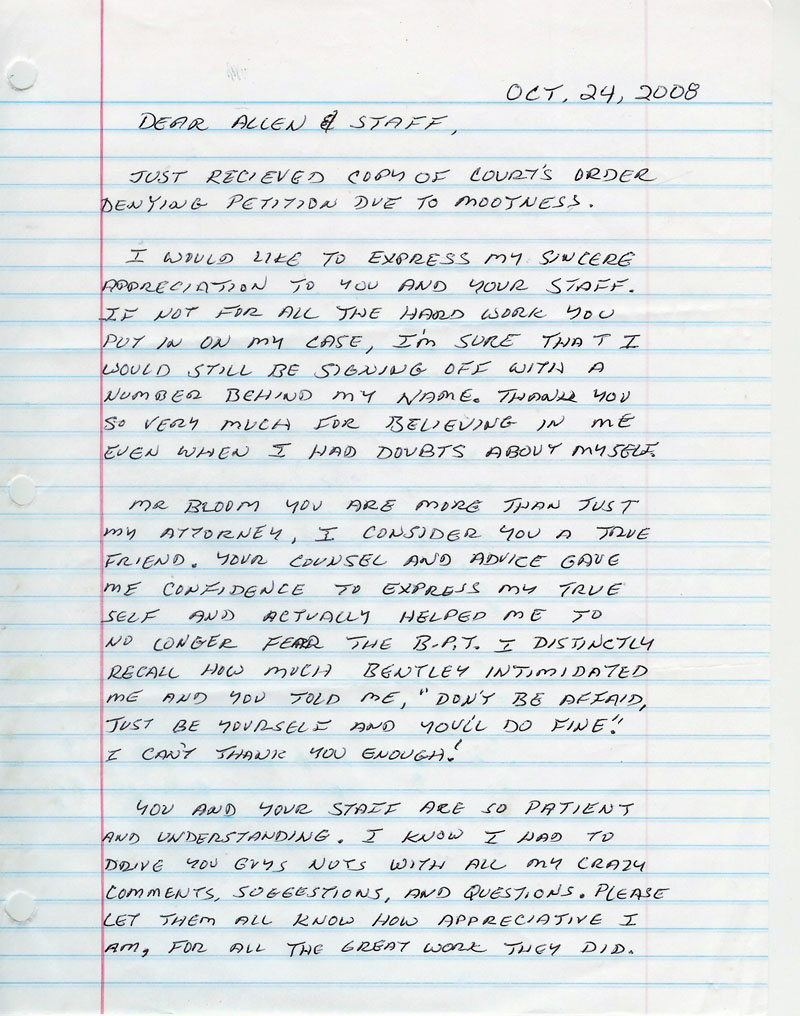 OCT, 24, 2008
DEAR ALLEN & STAFF,
JUST RECIEVED COPY OF COURT'S ORDER
DENYING PETITION DUE TO MOOTNESS.
I WOULD LIKE TO EXPRESS MY SINCERE
APPRECIATION TO YOU AND YOUR STAFF.
IF NOT FOR ALL THE HARD WORK YOU
PUT IN ON MY CASE, I'M SURE THAT I
WOULD STILL BE SIGNING OFF WITH A
NUMBER BEHIND MY NAME. THANK YOU
SO VERY MUCH FOR BELIEVING IN ME
EVEN WHEN I HAD DOUBTS ABOUT MYSELF.
MR BLOOM YOU ARE MORE THAN JUST
MY ATTORNEY, I CONSIDER YOU A TRUE
FRIEND. YOUR COUNSEL AND ADVICE GAVE
ME CONFIDENCE TO EXPRESS MY TRUE
SELF AND ACTUALLY HELPED ME TO
NO LONGER FEAR THE B.P.T. I DISTINCTLY
RECALL HOW MUCH BENTLEY INTIMIDATED
ME AND YOU TOLD ME, "DON'T BE AFFAID,
JUST BE YOURSELF AND YOU'LL DO FINE."
I CAN'T THANK YOU ENOUGH!
YOU AND YOUR STAFF ARE SO PATIENT
AND UNDERSTANDING. I KNOW I HAD TO
DRIVE YOU GUYS NUTS WITH ALL MY CRAZY
COMMENTS, SUGGESTIONS, AND QUESTIONS. PLEASE
LET THEM ALL KNOW HOW APPRECIATIVE I
AM, FOR ALL THE GREAT WORK THEY DID.